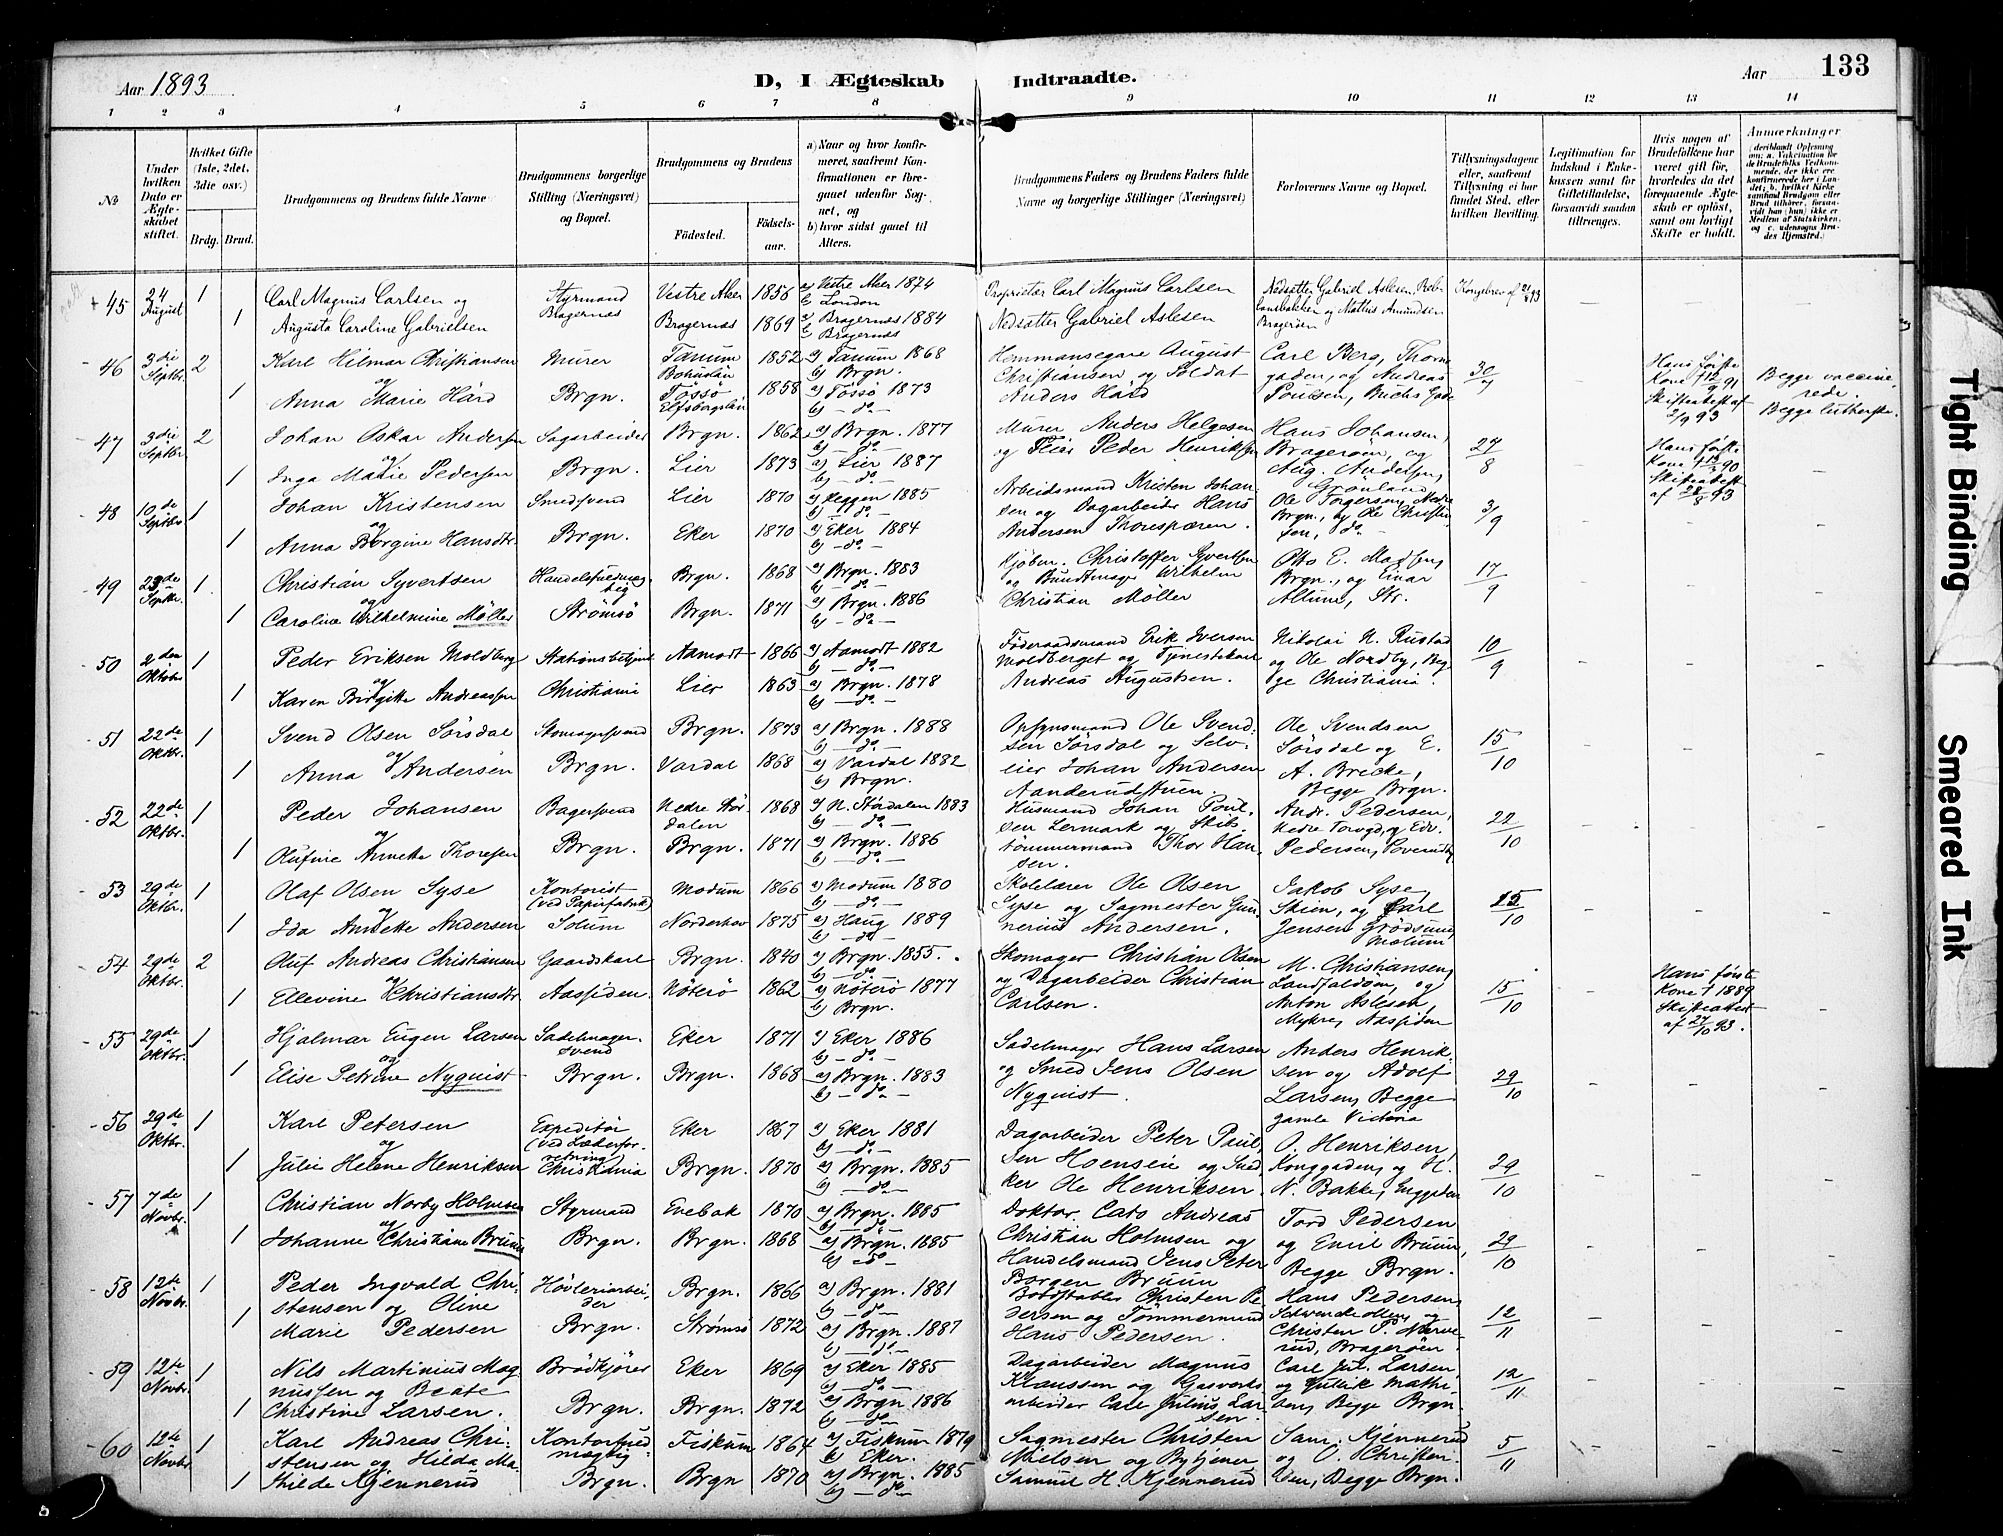 Aar 1893
D, I Ægteskab Indtraadte.
Aar 133
1 2 3 4 5 6 7 8 9 10 11 12 13 14
No
Under hvilken Dato er Ægteskabet stiftet.
Hvilket Gifte (1ste, 2det, 3die osv.)
Brdg. Brud.
Brudgommens og Brudens fulde Navne
Brudgommens borgerlige Stilling (Næringsvei) og Bopæl.
Brudgommens og Brudens
Fødested. Fødselsaar.
a) Naar og hvor konfirmeret, saafremt Konfirmationen er foregaaet udenfor Sognet, og
b) hvor sidst gaaet til Alters.
Brudgommens Faders og Brudens Faders fulde Navne og borgerlige Stillinger (Næringsvei)
Forlovernes Navne og Bopæl.
Tillysningsdagene eller, saafremt Tillysning ei har fundet Sted, efter hvilken Bevilling.
Legitimation for Indskud i Enkekassen samt for Giftetilladelse, forsaavidt saadan tiltrænges.
Hvis nogen af Brudefolkene har været gift før, hvorledes da det foregaaende Ægteskab er opløst, samt om lovligt Skifte er holdt.
Anmærkninger
45 24 August 1 Carl Magnus Carlsen og Styrmand Vestre Aker 1856 a) Vestre Aker 1874 b) London Proprietær Carl Magnus Carlsen Nedsætter Gabriel Aslesen, Kongebrev af 21/8 93
1 Augusta Caroline Gabrielsen Bragernæs Bragernæs 1869 a) Bragernæs 1884 b) Bragernæs Nedsætter Gabriel Aslesen og Mathis Amundsen Bragerøen
46 3die Septbr. 2 Karl Hilmar Christiansen Murer Tanum Bohuslän 1852 a) Tanum 1868 b) Brgn. Hemmansegare August Carl Berg, Thorne
1 og Anna Marie Hård Brgn. Tössö Elfsborgslän 1858 a) Tössö 1873 b) - do - Christiansen og Soldat Anders Hård gaden, og Andreas Poulsen, Buchs Gade 30/7 Hans første Kone † Skifteattest af 2/9 93 Begge vaccinerede. Begge lutherske.
47 3die Septbr 2 Johan Oskar Andersen Sagarbeider Brgn. 1862 a) Brgn. 1877 b) - do - Murer Anders Helgesen Hans Johansen,
1 og Inga Marie Pedersen Brgn. Lier 1873 a) Lier 1887 b) - do - og Peder Henriksen Bragerøen, og Aug. Andersen, Grønland 27/8 Hans første Kone † Skifteattest af
48 10de Septbr 1 Johan Kristensen Smedsvend Lier 1870 a) Heggen 1885 b) - do - Arbeidsmand Kristen Johansen og Dagarbeider Hans Ole Torgersen, Nedre
1 og Anna Borgine Hansdtr. Brgn. Eker 1870 a) Eker 1884 b) - do - Andersen Brgn., og Ole Christiansen, do - 3/9
49 23de Septbr. 1 Christian Syvertsen Brgn. 1868 a) Brgn. 1883 b) - do - Kjøbm. Christoffer Syvertsen Otto E. Madsen,
1 og Caroline Wilhelmine Möller Strömsö Brgn. 1871 a) Brgn. 1886 b) - do - og Bundtmager Wilhelm Christian Möller Brgn., og Einar Altune, Str. 17/9
50 2den Oktober 1 Peder Eriksen Moldberget Stationsbetjent Aamodt 1866 a) Aamodt 1882 b) - do - Föderaadsmand Erik Iversen Nikolai N. Rustad
1 og Karen Birgitte Andreassen Christiania Lier 1863 a) Brgn. 1878 b) - do - Moldberget og Tjenestekarl Andreas Augustsen. og Ole Nordby, Begge Christiania. 10/9
51 22de Oktbr. 1 Svend Olsen Sörsdal Skomagersvend Brgn. 1873 a) Brgn. 1888 b) - do - Opsynsmand Ole Svendsen Sörsdal og Selveier Johan Andersen Ole Svendsen
1 og Anna Andersen Brgn. Vardal 1868 a) Vardal 1882 b) Brgn. Sörsdal og E. A. Bricke, Begge Brgn. 15/10
52 22de Oktbr. 1 Peder Johansen Bagersvend Nedre Stördalen 1868 a) N. Stördalen 1883 b) - do - Husmand Johan Poulsen Lermark og Skibs Andr. Pedersen,
1 og Rufine Annette Thoresen Brgn. Brgn. 1871 a) Brgn. 1886 b) - do - tömmermand Thor Hansen. Nedre og Edv. Pedersen, 22/10
53 29de Oktbr. 1 Olaf Olsen Syse Kontorist (ved Papirfabrik) Modum 1866 a) Modum 1880 b) - do - Skolelærer Ole Olsen Jakob Syse,
1 og Ida Annette Andersen Solum Norderhov 1875 a) Haug 1889 b) - do Syse og Sagmester Gunnerius Andersen. Skien, og Carl Jensen 15/10
54 29de Oktbr. 2 Oluf Andreas Christiansen Gaardskarl Brgn. 1840 a) Brgn. 1855. b) - do - Skomager Christian Olsen M. Christiansen,
1 og Ellevine Christiansdtr. Aassiden. Nöterö 1862 a) Nöterö 1877 b) Brgn. og Dagarbeider Christian Carlsen. Landfaldöen, og Anton Aslesen, Myhre, Aassiden 15/10 Hans første Kone † 1889 Skifteattest af 27/10 93.
55 29de Oktbr. 1 Hjalmar Eugen Larsen Sadelmager Svend Eker 1871 a) Eker 1886 b) - do - Sadelmager Hans Larsen Anders Henrik-
1 og Elise Petrine Nyquist Brgn. Brgn. 1868 a) Brgn. 1883 b) - do - og Smed Jens Olsen Nyquist. sen og Adolf Larsen, Begge gamle Victoria 29/10
56 29de Oktbr. 1 Karl Petersen Expeditör (ved Læderforretning) Eker 1867 a) Eker 1881 b) - do - Dagarbeider Peter Paul- O. Henriksen,
1 og Julie Helene Henriksen Christiania Brgn. 1870 a) Brgn. 1885 b) - do - sen Hoenseie og Snedker Ole Henriksen. Konggaden, og H. N. Bakke, Enggaden 29/10
57 7de Novbr. 1 Christian Norby Holmsen Styrmand Enebak 1870 a) Brgn. 1885 b) - do - Doktor. Cato Andreas Tord Pedersen
1 og Johanne Christiane Bruun Brgn. Brgn. 1868 a) Brgn. 1885 b) - do - Christian Holmsen og Handelsmand Jens Peter Borgen Bruun og Emil Bruun, Begge Brgn. 29/10
58 12te Novbr. 1 Peder Ingvald Christensen og Oline Hövleriarbeider Brgn. 1866 a) Brgn. 1881 b) - do - Christen Pedersen og Tömmermand Hans Pedersen,
1 Marie Pedersen Brgn. Strømsö 1872 a) Brgn. 1887 b) - do - Hans Pedersen. og Christen P. Narverud, Bragerøen. 12/11
59 12te Novbr. 1 Nils Martinius Magnussen og Beate Brödkjörer Eker 1869 a) Eker 1885 b) - do - Dagarbeider Magnus Carl Jul. Larsen
1 Christine Larsen. Brgn. Brgn. 1872 a) Brgn. 1886 b) - do - Klaussen og Gasverksarbeider Carl Julius Larsen. og Gullik Mathisen, Begge Brgn. 12/11
60 12te Novbr. 1 Karl Andreas Christensen og Hilda Ma- Kontorfuldmægtig Fiskum 1864 a) Fiskum 1879 b) Eker. Sagmester Christen Sam. Kjennerud
1 thilde Kjennerud Brgn. Brgn 1870 a) Brgn. 1885 b) - do - Nielsen og Bytjener Samuel H. Kjennerud og O. Christensen, Begge Brgn. 5/11
Tight Binding
Smeared Ink